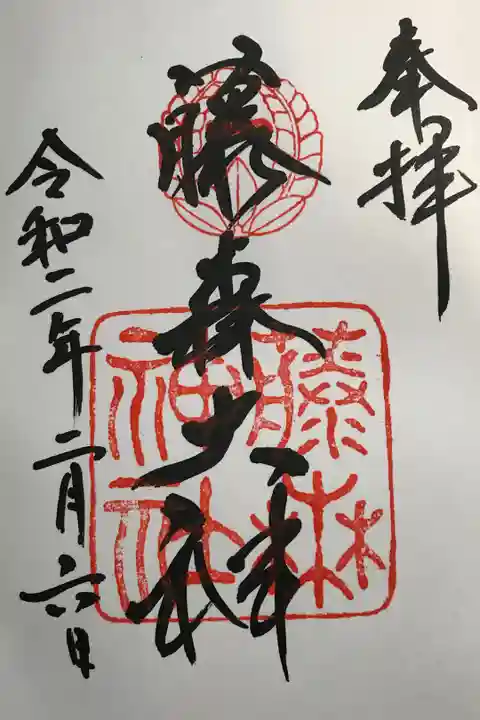 奉拝
藤森大神
藤森
神社
令和二年二月六日